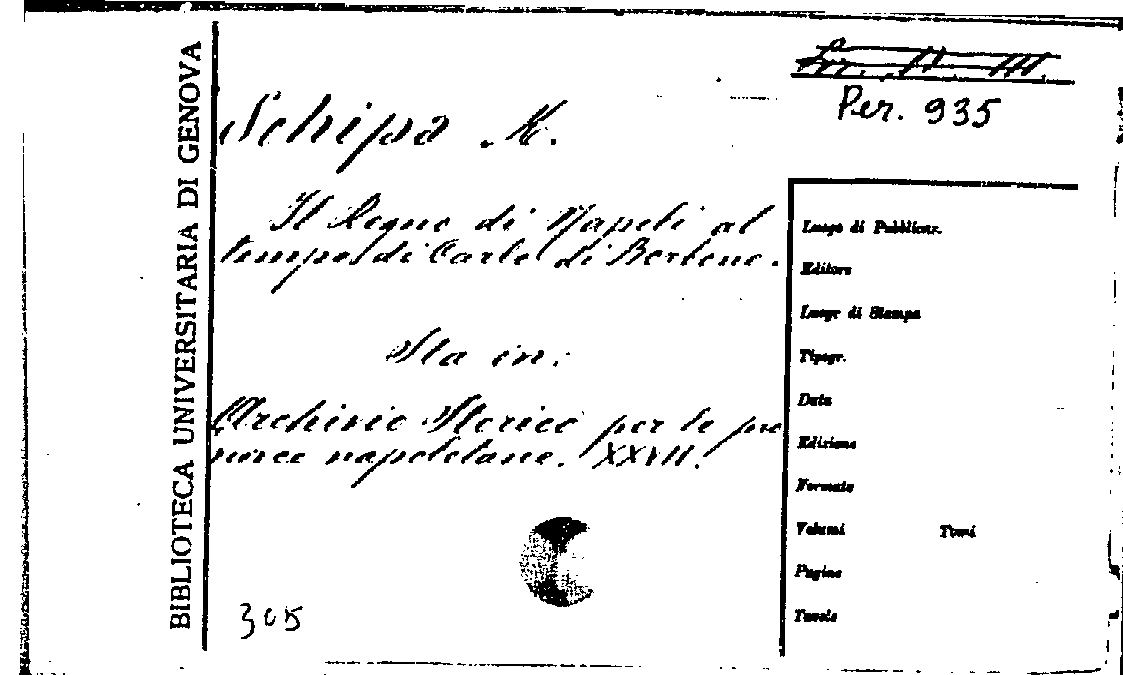 BIBLIOTECA UNIVERSITARIA DI GENOVA
Per. 935
Schipa M.
Il Regno di Napoli al
tempo di Carlo di Borbone.
Sta in:
Archivio Storico per le pro
vince napoletane. XXVII.
305
Luogo di Pubblicaz.
Editore
Luogo di Stampa
Tipogr.
Data
Edizione
Formato
Volumi Tomi
Pagine
Tavole